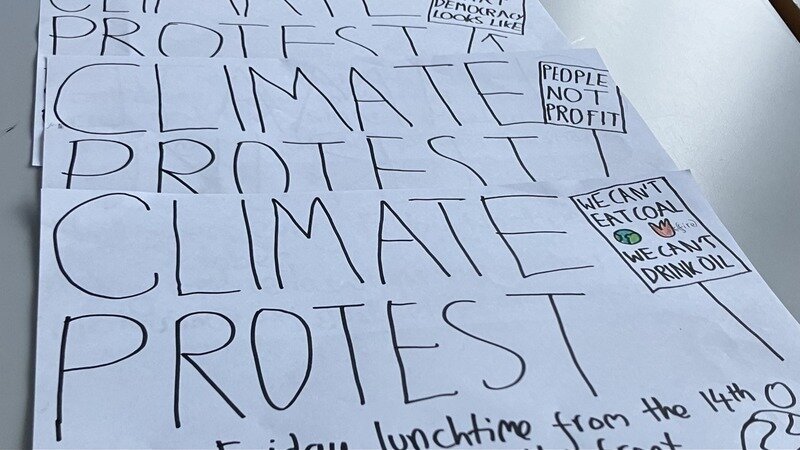 CLIMATE
DEMOCRACY
LOOKS LIKE
PROTEST
CLIMATE
PEOPLE
NOT
PROFIT
PROTEST
CLIMATE
WE CAN'T
EAT COAL
WE CAN'T
DRINK OIL
PROTEST
Friday lunchtime from the 14th O
the front